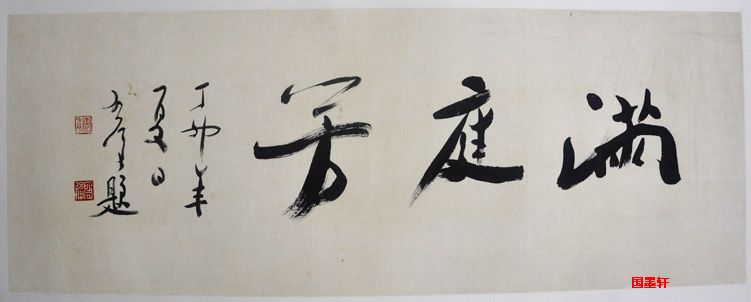 满庭芳
丁卯年
夏日
题
国墨轩